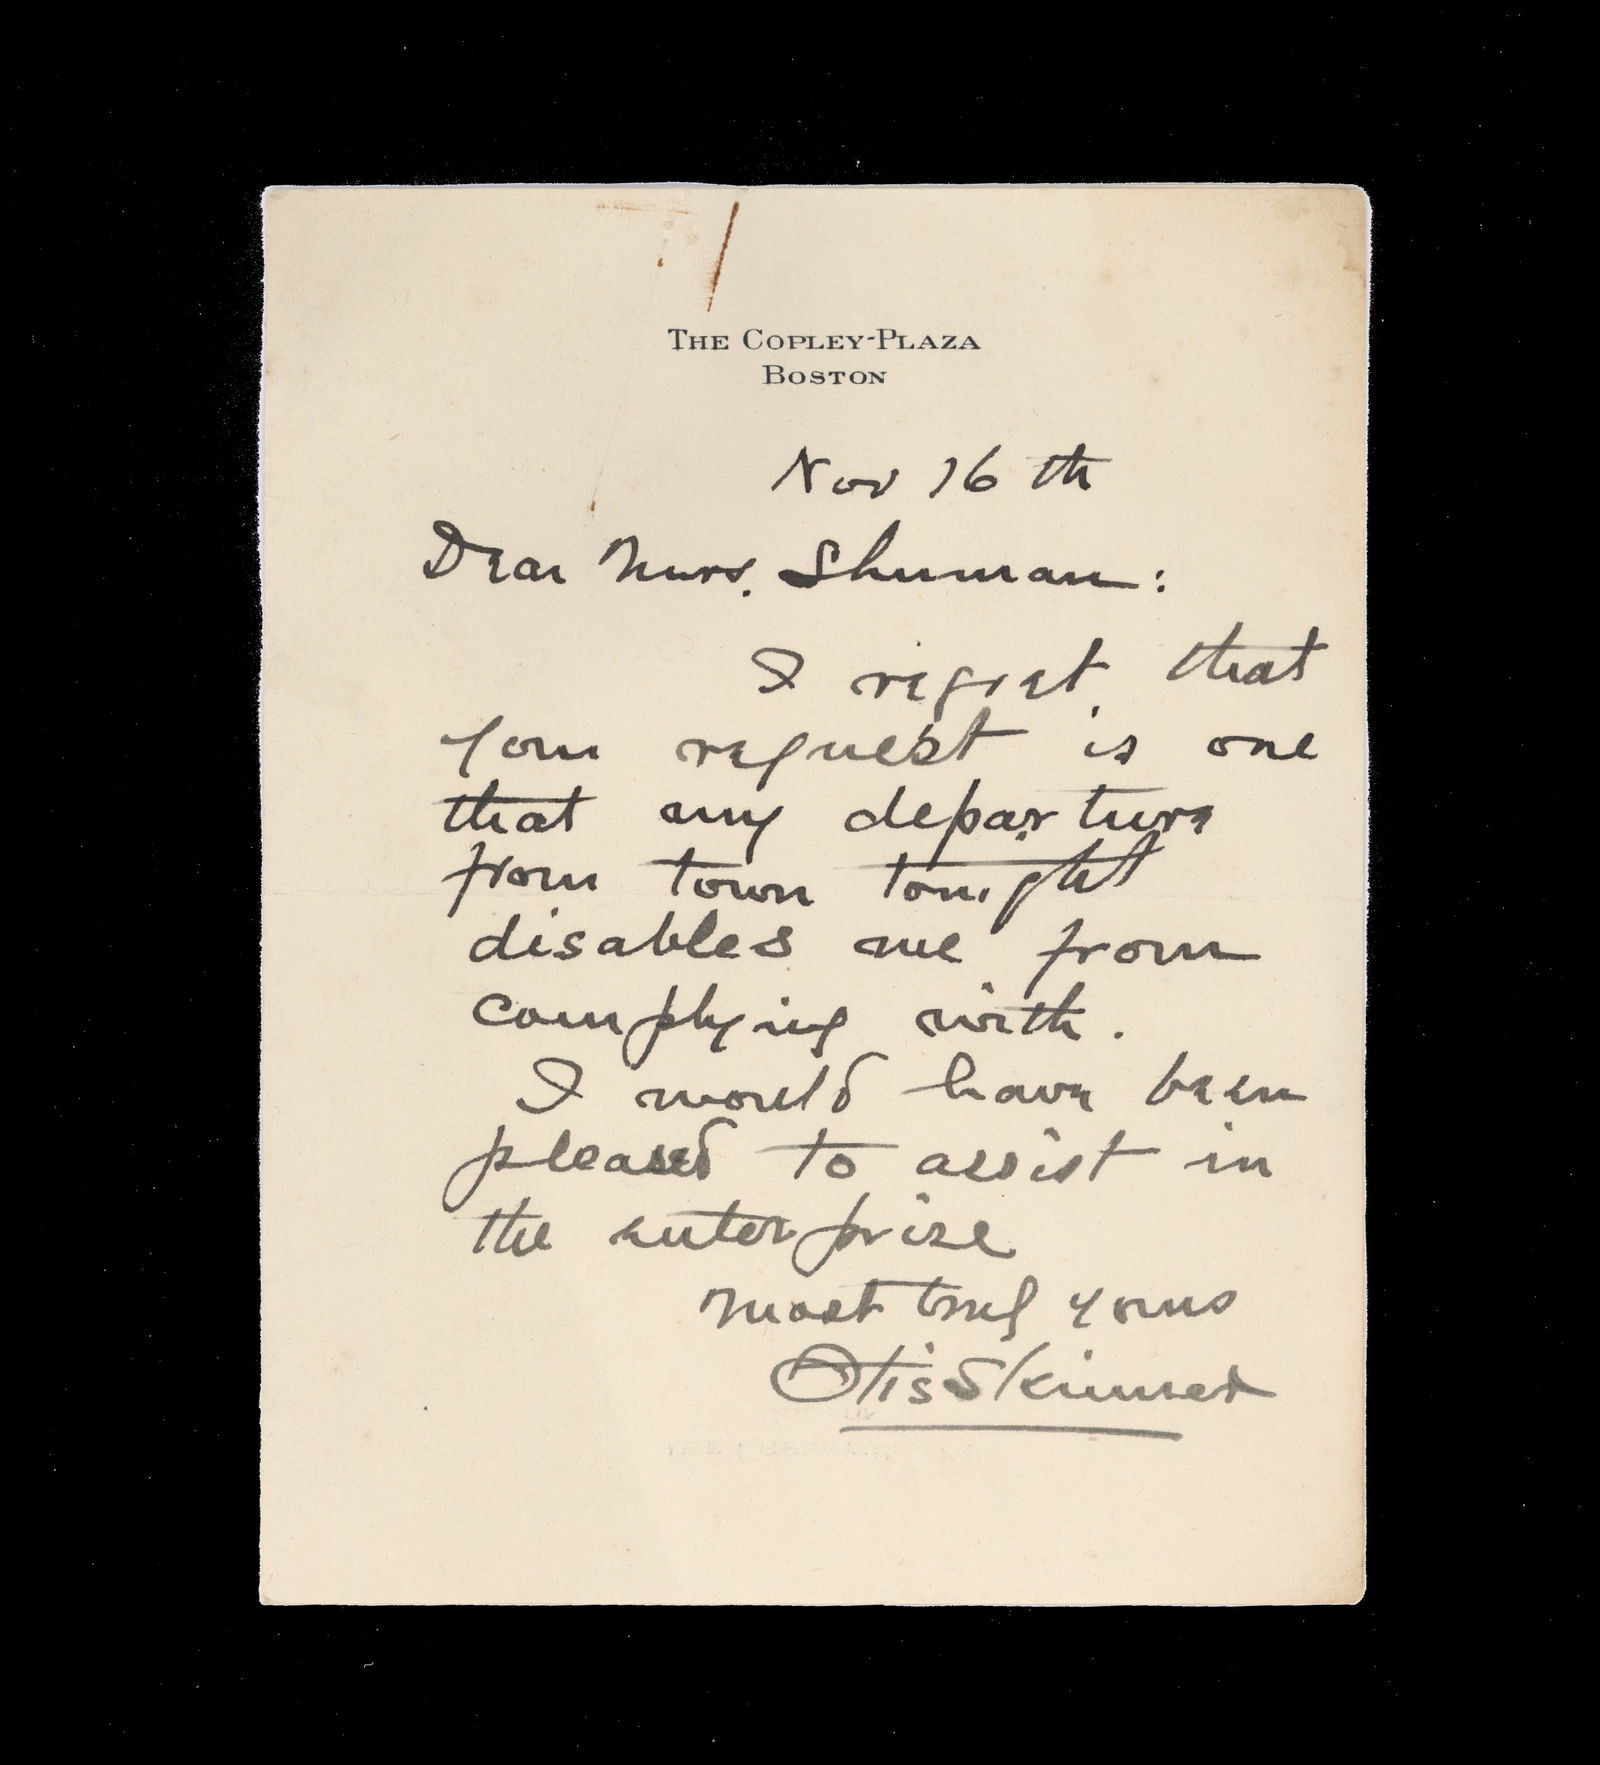 THE COPLEY-PLAZA
BOSTON
Nov 16th
Dear Mrs. Shuman:
I regret that
your request is one
that my departure
from town tonight
disables me from
complying with.
I would have been
pleased to assist in
the enterprise
Most truly yours
Otis Skinner